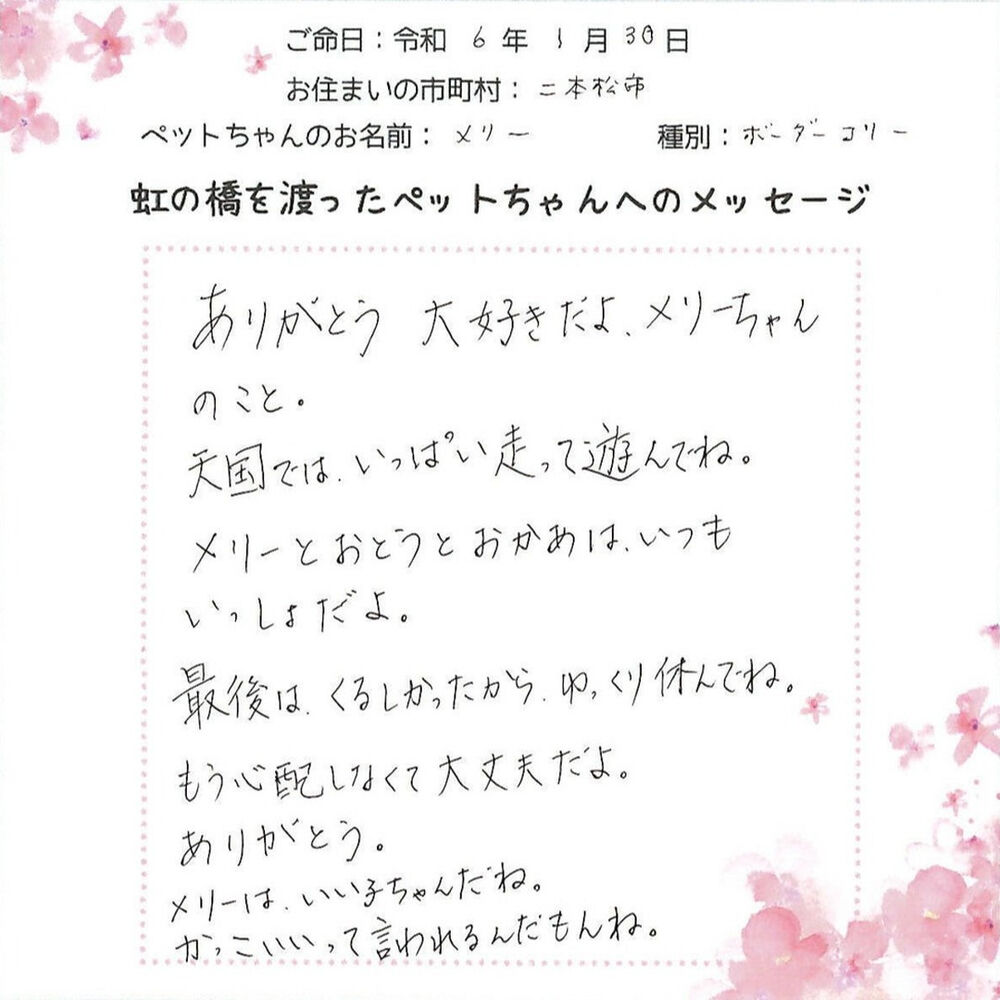 ご命日：令和 6 年 1 月 30 日
お住まいの市町村：二本松市
ペットちゃんのお名前：メリー 種別：ボーダーコリー
虹の橋を渡ったペットちゃんへのメッセージ
ありがとう 大好きだよ、メリーちゃん
のこと。
天国では、いっぱい走って遊んでね。
メリーとおとうとおかあは、いつも
いっしょだよ。
最後は、くるしかったから、ゆっくり休んでね。
もう心配しなくて大丈夫だよ。
ありがとう。
メリーは、いい子ちゃんだね。
かっこいいって言われるんだもんね。